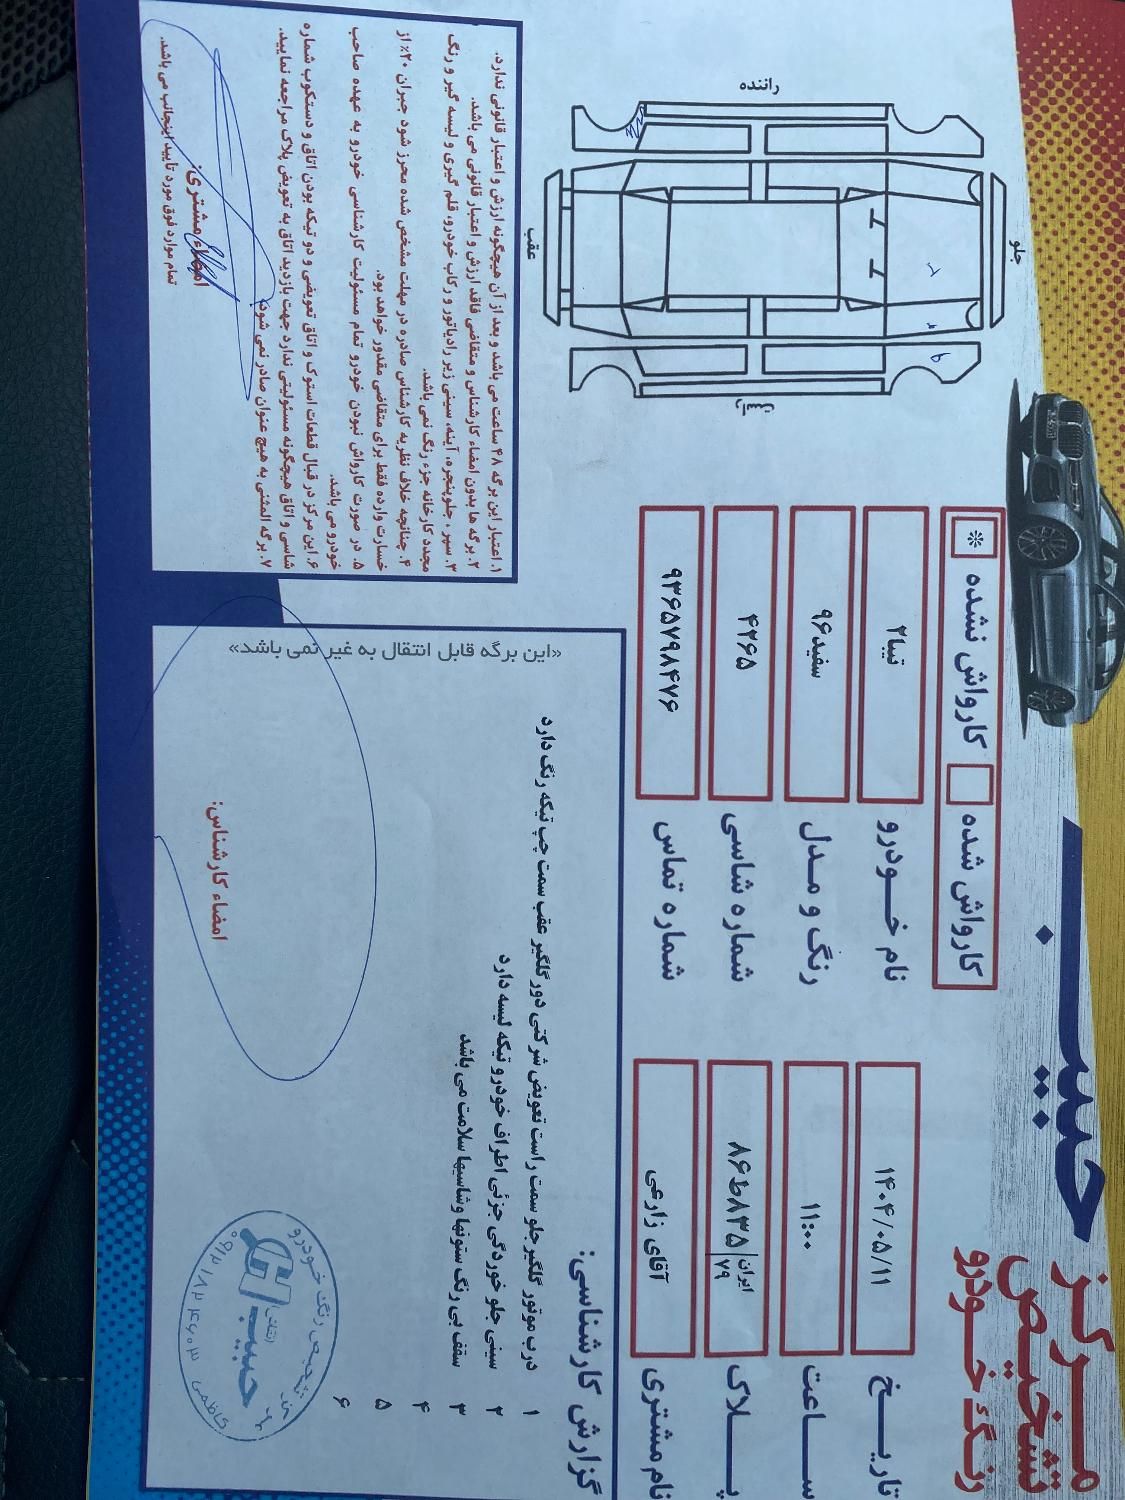 مرکز تشخیص رنگ خودرو
حبیب
کارواش شده
کارواش نشده *
تاریخ ۱۴۰۴/۰۵/۱۱
ساعت ۱۱:۰۰
پلاک ۸۶ط۸۳۵ ایران ۷۹
نام مشتری آقای زارعی
نام خودرو تیبا۲
رنگ و مدل سفید۹۶
شماره شاسی ۴۲۶۵
شماره تماس ۹۳۶۵۷۹۸۴۷۶
جلو
راننده
راست
عقب
گزارش کارشناسی:
۱ درب موتور گلگیر جلو سمت راست تعویض شرکتی دور گلگیر عقب سمت چپ تیکه رنگ دارد
۲ سینی جلو خوردگی جزئی اطراف خودرو تیکه لیسه دارد
۳ سقف بی رنگ ستونها وشاسیها سلامت می باشد
۴
۵
۶
«این برگه قابل انتقال به غیر نمی باشد»
امضاء کارشناس:
تشخیص رنگ خودرو
حبیب
کاظمی
۱. اعتبار این برگه ۴۸ ساعت می باشد و بعد از آن هیچگونه ارزش و اعتبار قانونی ندارد.
۲. برگه ها بدون امضاء کارشناس و متقاضی فاقد ارزش و اعتبار قانونی می باشد.
۳. سپر، جلوپنجره، آینه، سینی زیر رادیاتور و رکاب خودرو، قلم گیری و لیسه گیر و رنگ
مجدد کارخانه جزء رنگ نمی باشد.
۴. چنانچه خلاف نظریه کارشناس صادره در مهلت مشخص شده محرز شود جبران ۲۰٪ از
خسارت وارده فقط برای متقاضی مقدور خواهد بود.
۵. در صورت کارواش نبودن خودرو تمام مسئولیت کارشناسی خودرو به عهده صاحب
خودرو می باشد.
۶. این مرکز در قبال قطعات استوک و اتاق تعویضی و دو تیکه بودن اتاق و دستکوب شماره
شاسی و اتاق هیچگونه مسئولیتی ندارد جهت بازدید اتاق به تعویض پلاک مراجعه نمایید.
۷. برگه المثنی به هیچ عنوان صادر نمی شود.
امضاء مشتری:
تمام موارد فوق مورد تایید اینجانب می باشد.